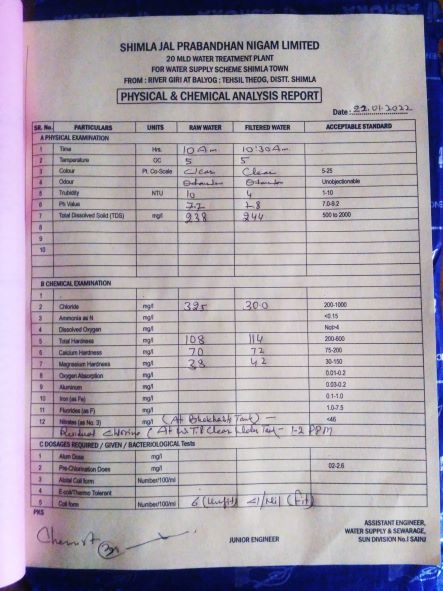 SHIMLA JAL PRABANDHAN NIGAM LIMITED
20 MLD WATER TREATMENT PLANT
FOR WATER SUPPLY SCHEME SHIMLA TOWN
FROM : RIVER GIRI AT BALYOG : TEHSIL THEOG, DISTT. SHIMLA
PHYSICAL & CHEMICAL ANALYSIS REPORT
Date : 22.01.2022
SR. No. PARTICULARS UNITS RAW WATER FILTERED WATER ACCEPTABLE STANDARD
A PHYSICAL EXAMINATION
1 Time Hrs. 10 Am 10:30 Am
2 Temperature OC 5 5
3 Colour Pt. Co-Scale Clear Clear 5-25
4 Odour Unobjectionable
5 Trubidity NTU 10 4 1-10
6 Ph Value 7.2 7.0-9.2
7 Total Dissolved Solid (TDS) mg/l 238 244 500 to 2000
8
9
10
B CHEMICAL EXAMINATION
1
2 Chloride mg/l 325 300 200-1000
3 Ammonia as N mg/l <0.15
4 Dissolved Oxygen mg/l Not>4
5 Total Hardness mg/l 108 114 200-600
6 Calcium Hardness mg/l 70 72 75-200
7 Magnesium Hardness mg/l 38 42 30-150
8 Oxygen Absorption mg/l 0.01-0.2
9 Aluminum mg/l 0.03-0.2
10 Iron (as Fe) mg/l 0.1-1.0
11 Fluorides (as F) mg/l 1.0-7.5
12 Nitrates (as No. 3) mg/l (At Tank) — <45
Residual Chlorine (At W.T.P Clear Water Tank - 1-2 PPM
C DOSAGES REQUIRED / GIVEN / BACTERIOLOGICAL Tests
1 Alum Dose mg/l
2 Pre-Chlorination Does mg/l 02-2.6
3 Atotal Coli form Number/100/ml
4 E-coli/Thermo Tolerant
5 Coli form Number/100/ml 6 (Unfit) <1/Nil (fit)
PKS
Chemist
JUNIOR ENGINEER
ASSISTANT ENGINEER,
WATER SUPPLY & SEWARAGE,
SUN DIVISION No.I SAINJ